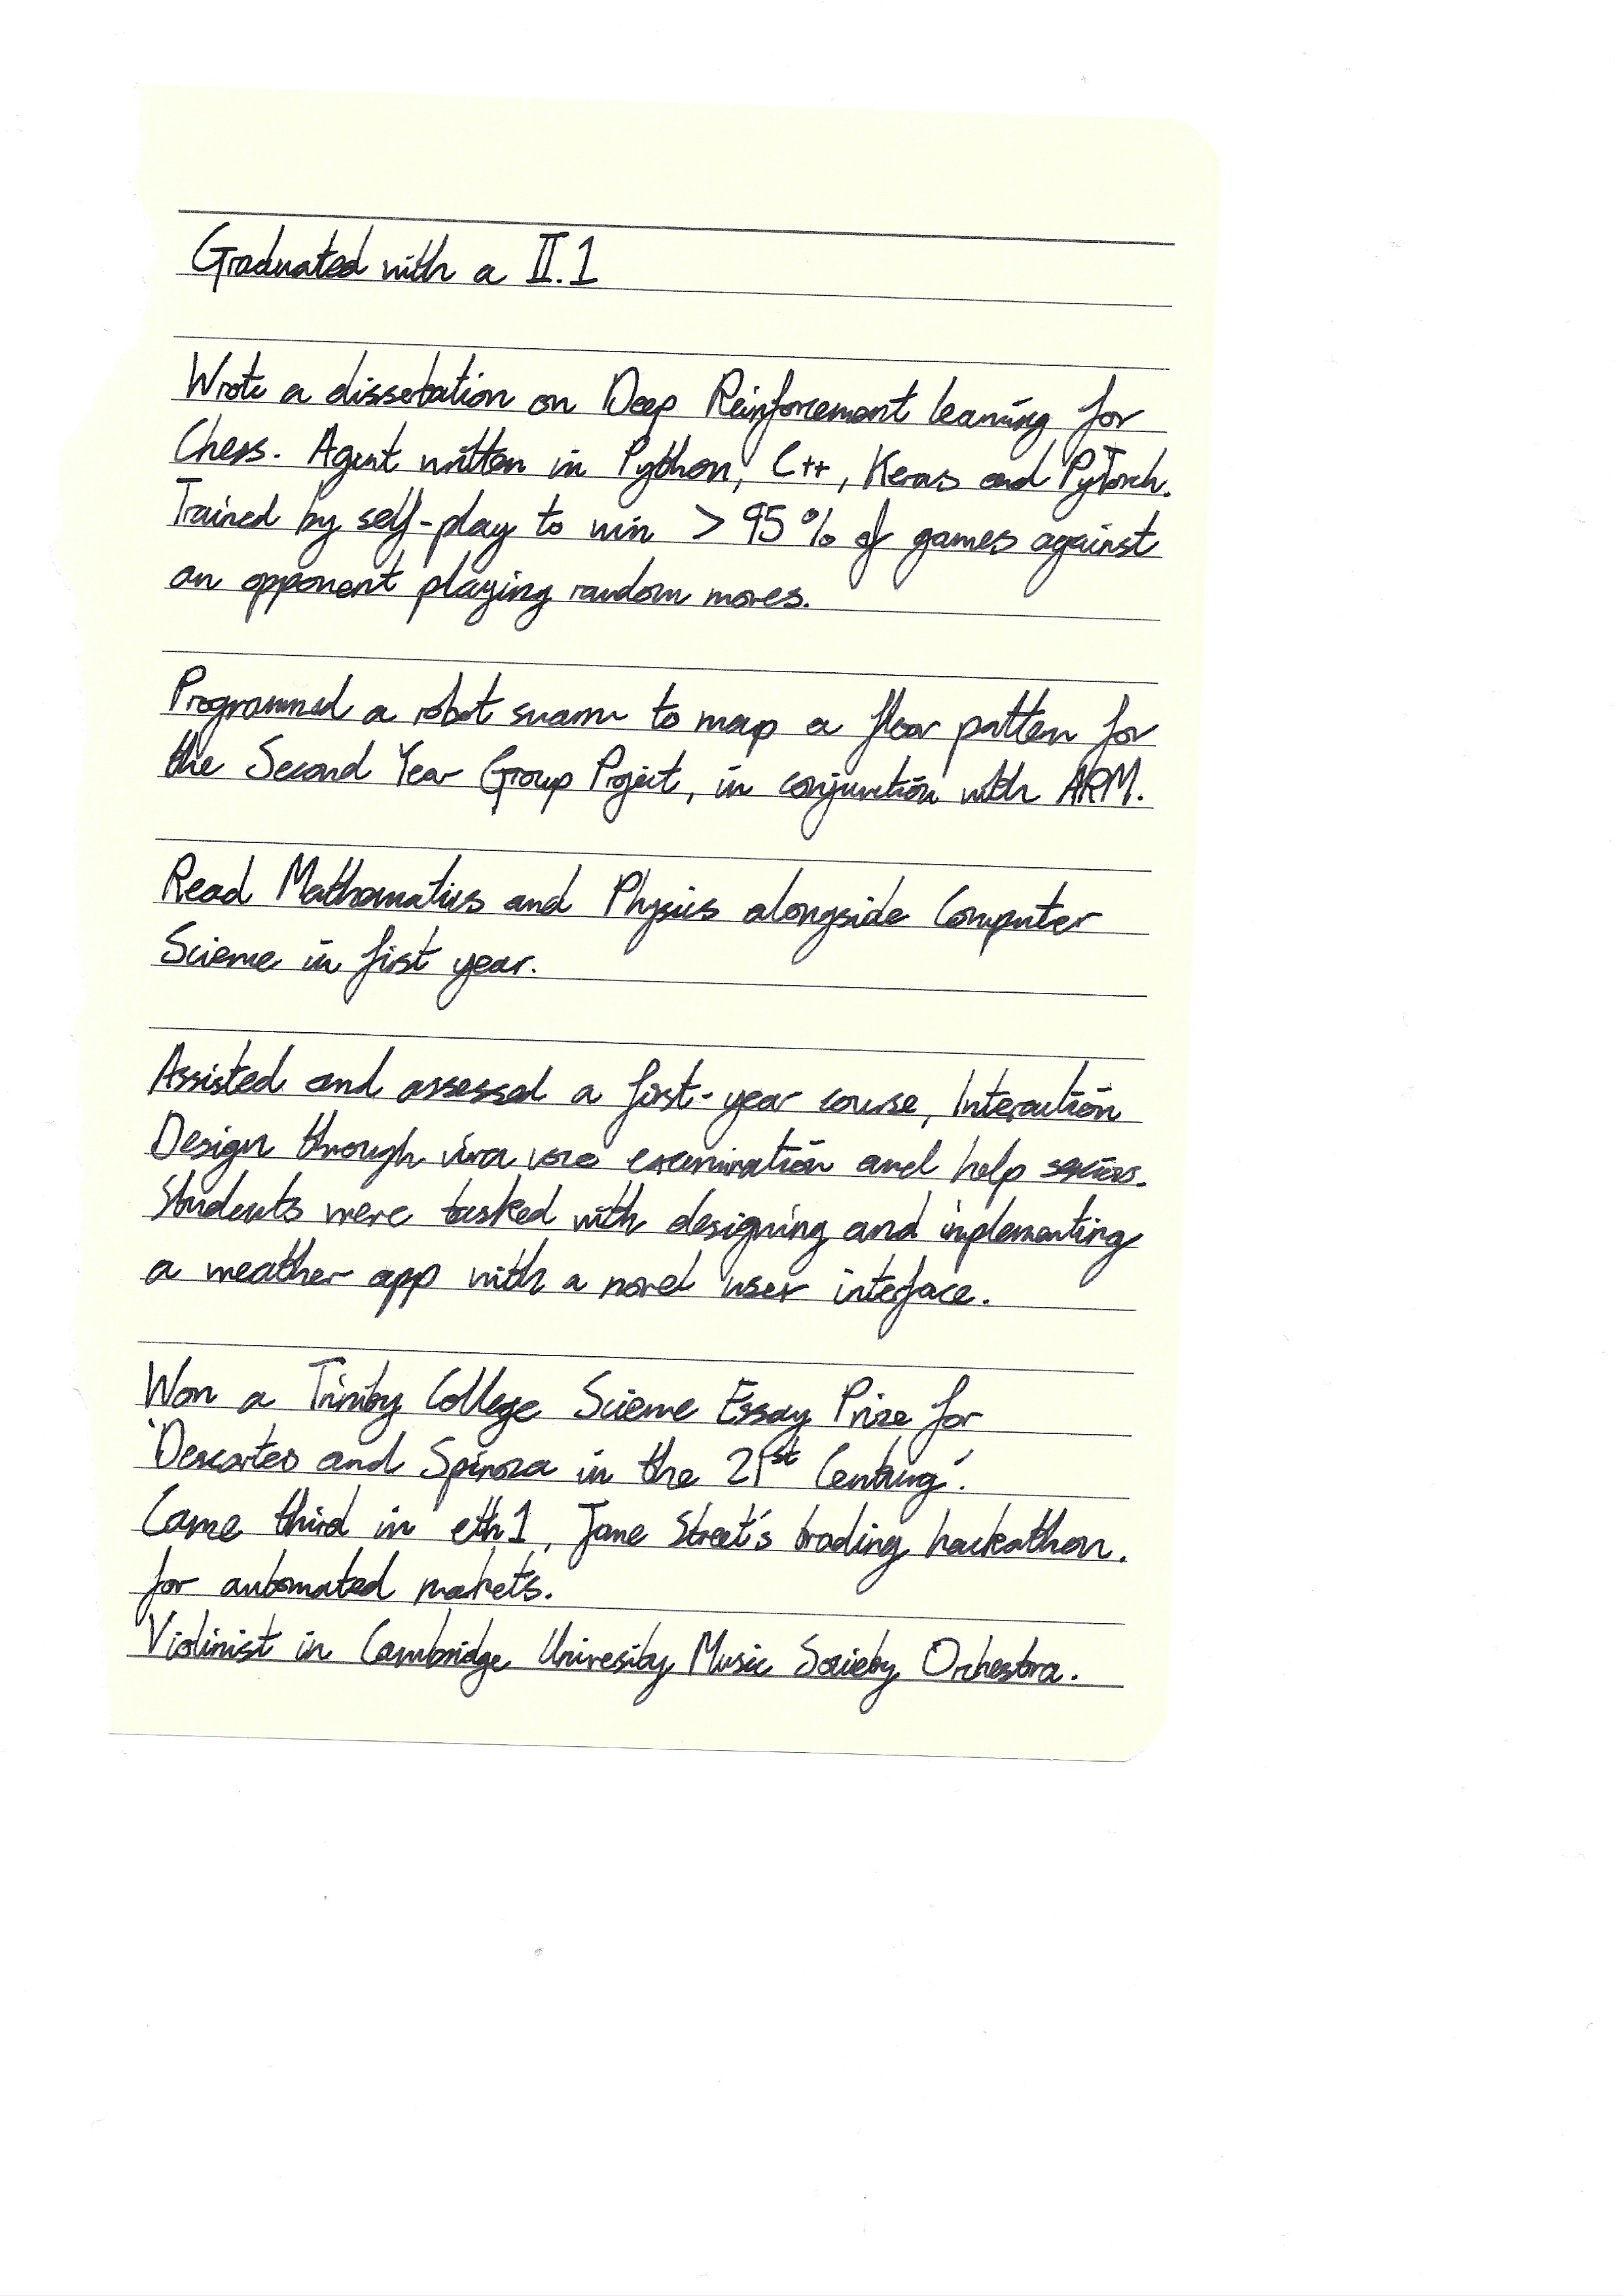 Graduated with a II.1
Wrote a dissertation on Deep Reinforcement learning for
Chess. Agent written in Python, C++, Keras and PyTorch.
Trained by self-play to win > 95% of games against
an opponent playing random moves.
Programmed a robot swarm to map a floor pattern for
the Second Year Group Project, in conjunction with ARM.
Read Mathematics and Physics alongside Computer
Science in first year.
Assisted and assessed a first-year course, Interaction
Design through viva voce examination and help sessions.
Students were tasked with designing and implementing
a weather app with a novel user interface.
Won a Trinity College Science Essay Prize for
'Descartes and Spinoza in the 21st Century'.
Came third in eth1, Jane Street's trading hackathon.
for automated markets.
Violinist in Cambridge University Music Society Orchestra.